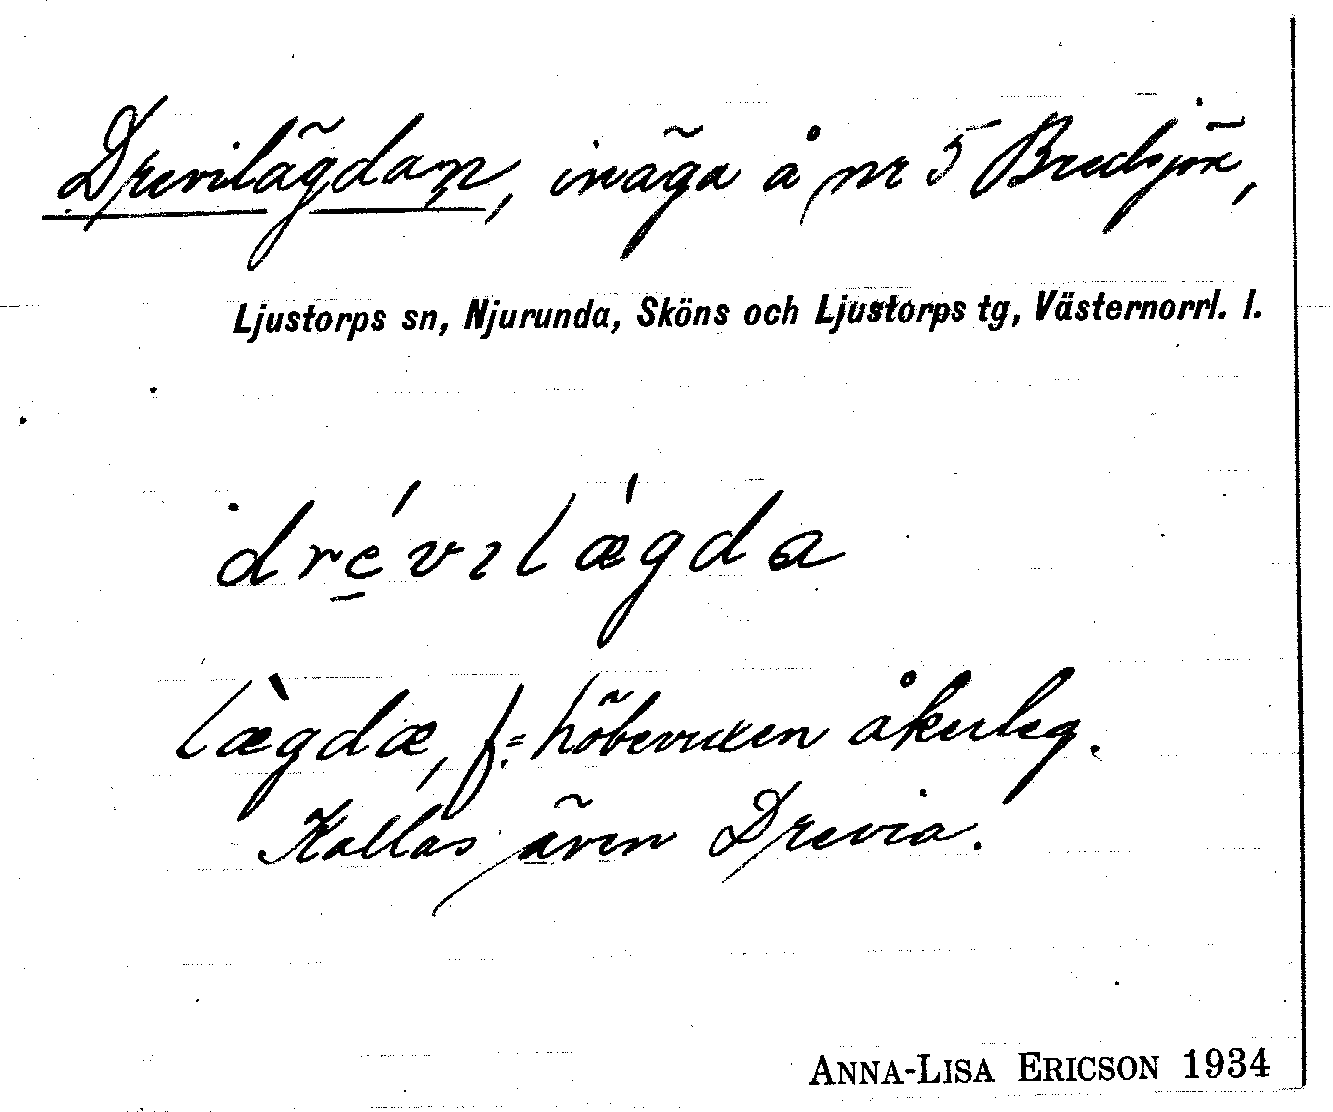 Drevilägdan, inäga å nr 5 Bredsjön,
Ljustorps sn, Njurunda, Sköns och Ljustorps tg, Västernorrl. l.
dre̱´vılæ̀gda
læ̀gdæ, f. = höbevuxen åkerleg.
Kallas även Drevia.
ANNA-LISA ERICSON 1934